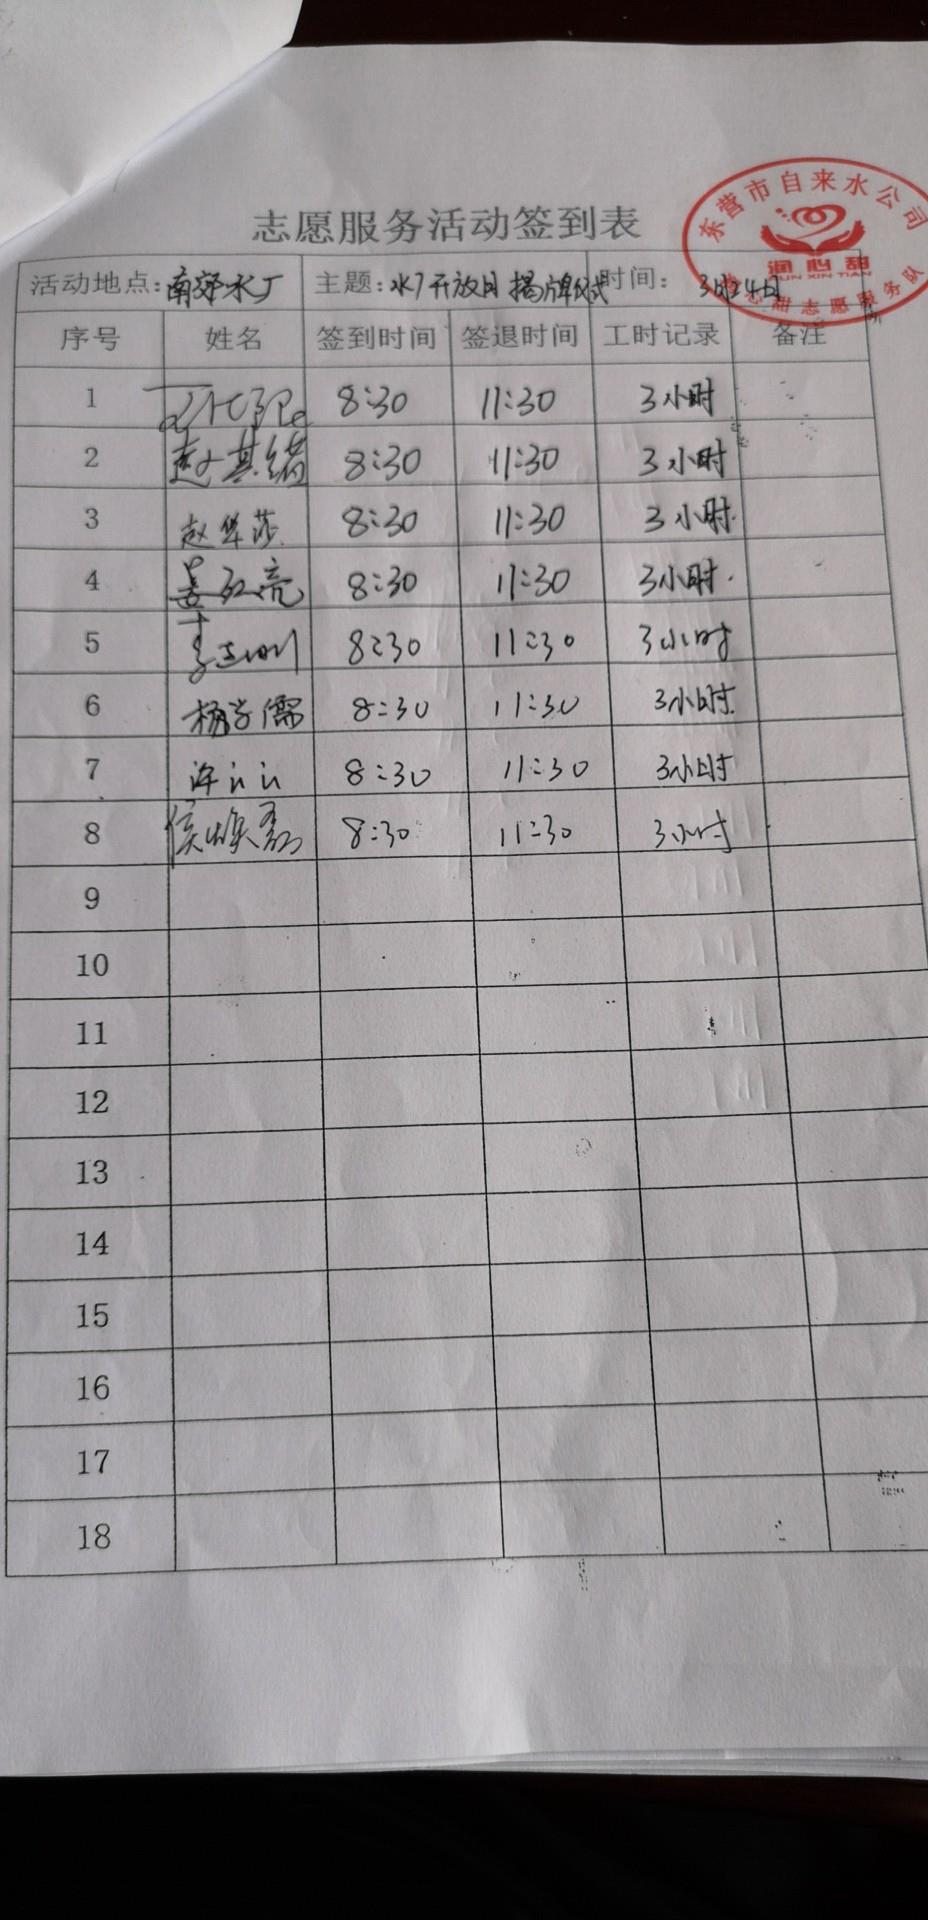 东营市自来水公司
润心甜
RUN XIN TIAN
润心甜志愿服务队
志愿服务活动签到表
活动地点：南郊水厂 主题：水厂开放日揭牌仪式 时间：3月24日
序号 姓名 签到时间 签退时间 工时记录 备注
1 8:30 11:30 3小时
2 赵其绪 8:30 11:30 3小时
3 赵华莎 8:30 11:30 3小时
4 姜红亮 8:30 11:30 3小时
5 8:30 11:30 3小时
6 杨学儒 8:30 11:30 3小时
7 许云云 8:30 11:30 3小时
8 侯焕磊 8:30 11:30 3小时
9
10
11
12
13
14
15
16
17
18